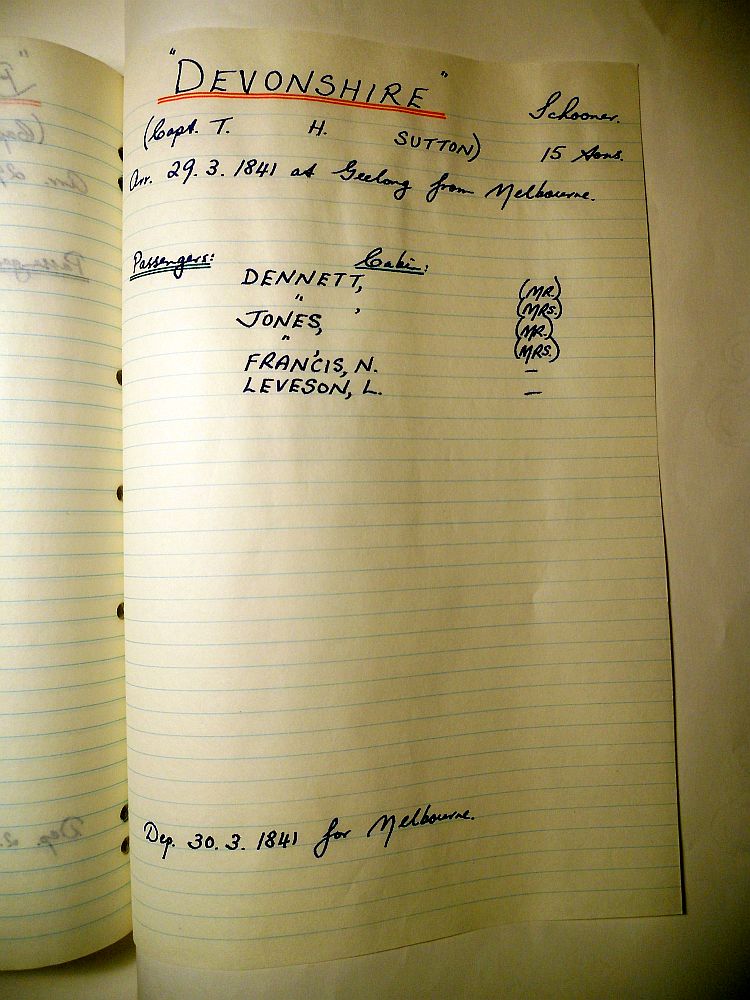 "DEVONSHIRE" Schooner.
(Capt. T. H. SUTTON) 15 tons.
Arr. 29. 3. 1841 at Geelong from Melbourne.
Passengers: Cabin:
DENNETT, (MR.)
" , (MRS.)
JONES, (MR.)
" , (MRS.)
FRANCIS, N. —
LEVESON, L. —
Dep. 30. 3. 1841 for Melbourne.